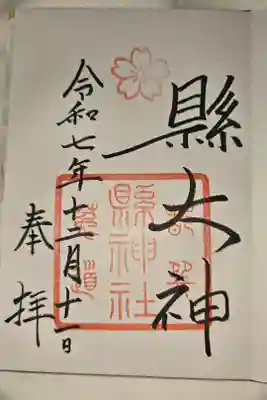 縣大神
縣神社
令和七年十二月十一日
奉拝